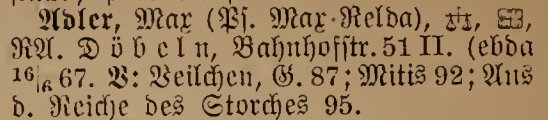 Adler, Max (Ps. Max Relda),
RA. Döbeln, Bahnhofstr. 51 II. (ebda
16/6 67. V: Veilchen, G. 87; Mitis 92; Aus
d. Reiche des Storches 95.